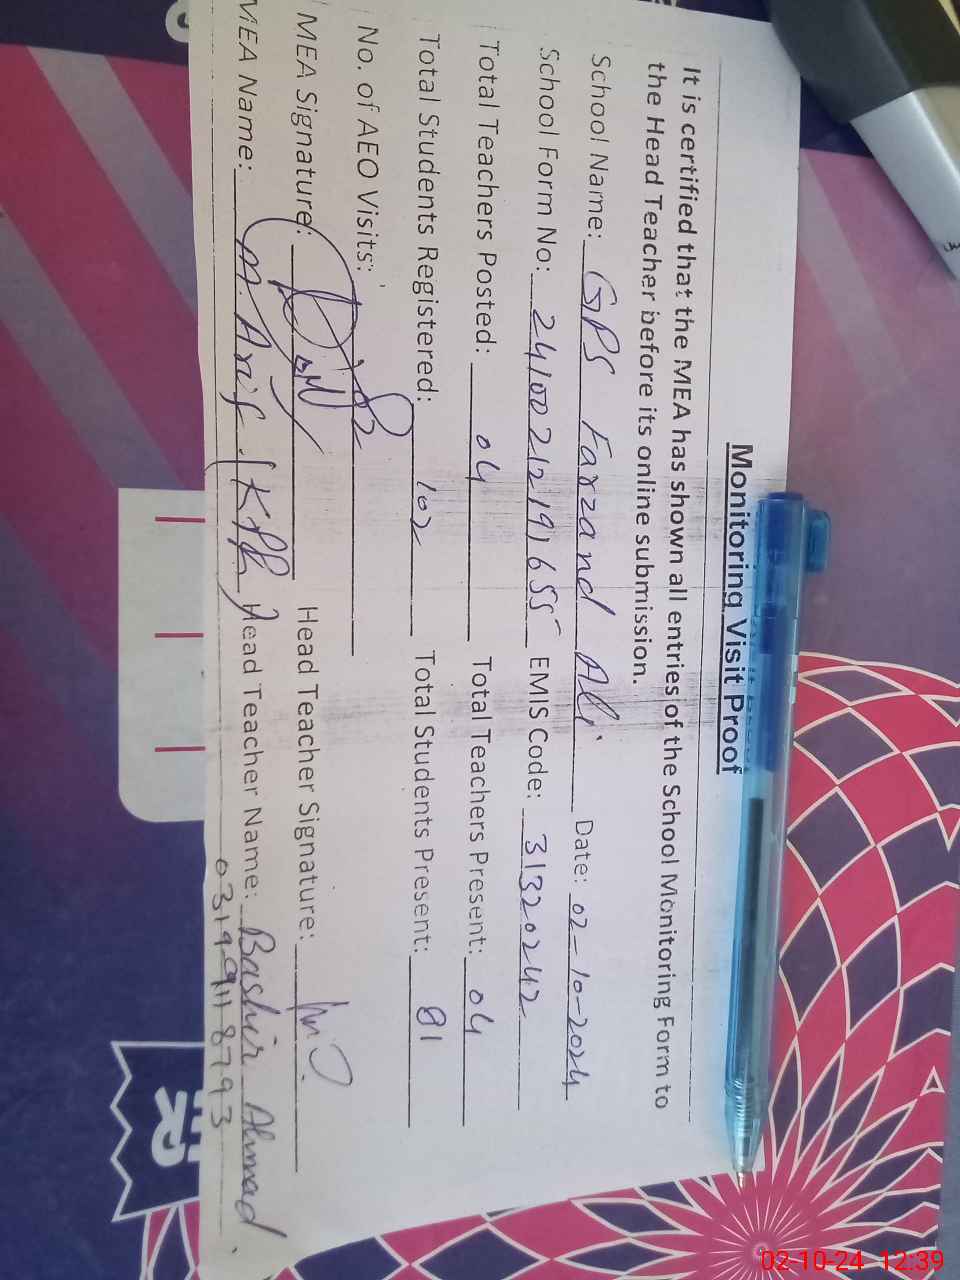 Monitoring Visit Proof
It is certified that the MEA has shown all entries of the School Monitoring Form to
the Head Teacher before its online submission.
School Name: GPS Farzand Ali Date: 02-10-2024
School Form No: 24100212191655 EMIS Code: 31320242
Total Teachers Posted: 04 Total Teachers Present: 04
Total Students Registered: 102 Total Students Present: 81
No. of AEO Visits:
MEA Signature: Head Teacher Signature:
MEA Name: M. Arif (KPR) Head Teacher Name: Bashir Ahmad
03199118793
ER
02-10-24 12:39